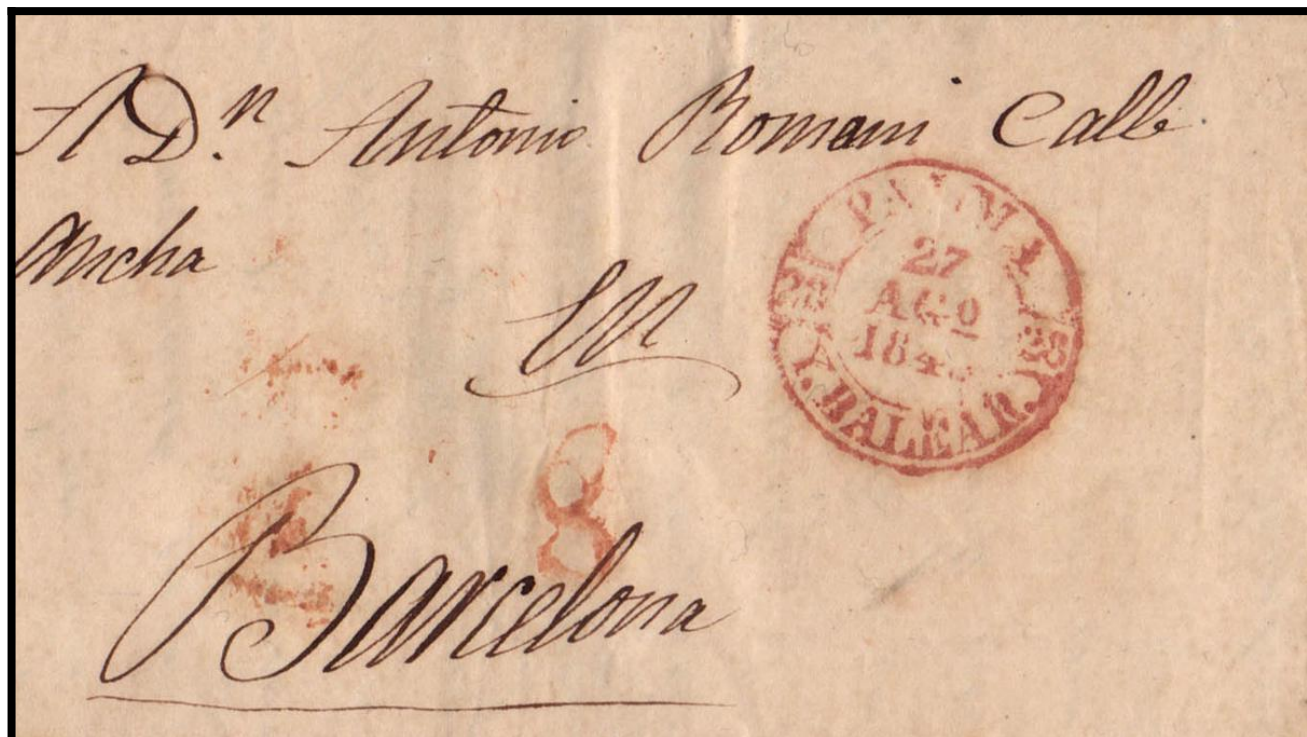 A D.n Antonio Romani Calle
Ancha
PALMA
27
AGO
184
Y. BALEAR.
8
Barcelona